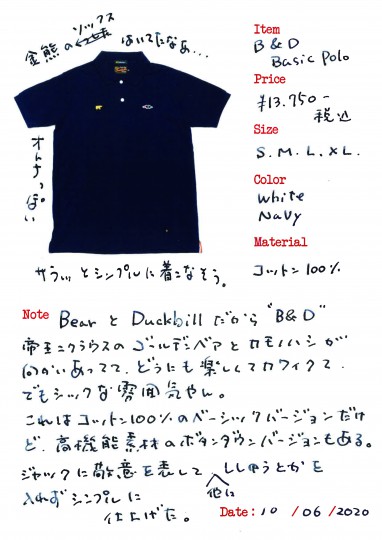 金熊のソックス はいてたなぁ...
オトナっぽい
サラッとシンプルに着こなそう。
Item
B & D
Basic Polo
Price
¥13.750-
税込
Size
S. M. L. XL.
Color
White
Navy
Material
コットン100%
Note Bear と Duckbill だから "B&D"
帝王ニクラウスのゴールデンベアとカモノハシが
向かいあってて、どうにも楽しくてカワイクて
でもシックな雰囲気やん。
これはコットン100%のベーシックバージョンだけ
ど、高機能素材のボタンダウンバージョンもある。
ジャックに敬意を表して、ししゅうとかを
他に
入れずシンプルに
仕上げた。
Date: 10 / 06 / 2020